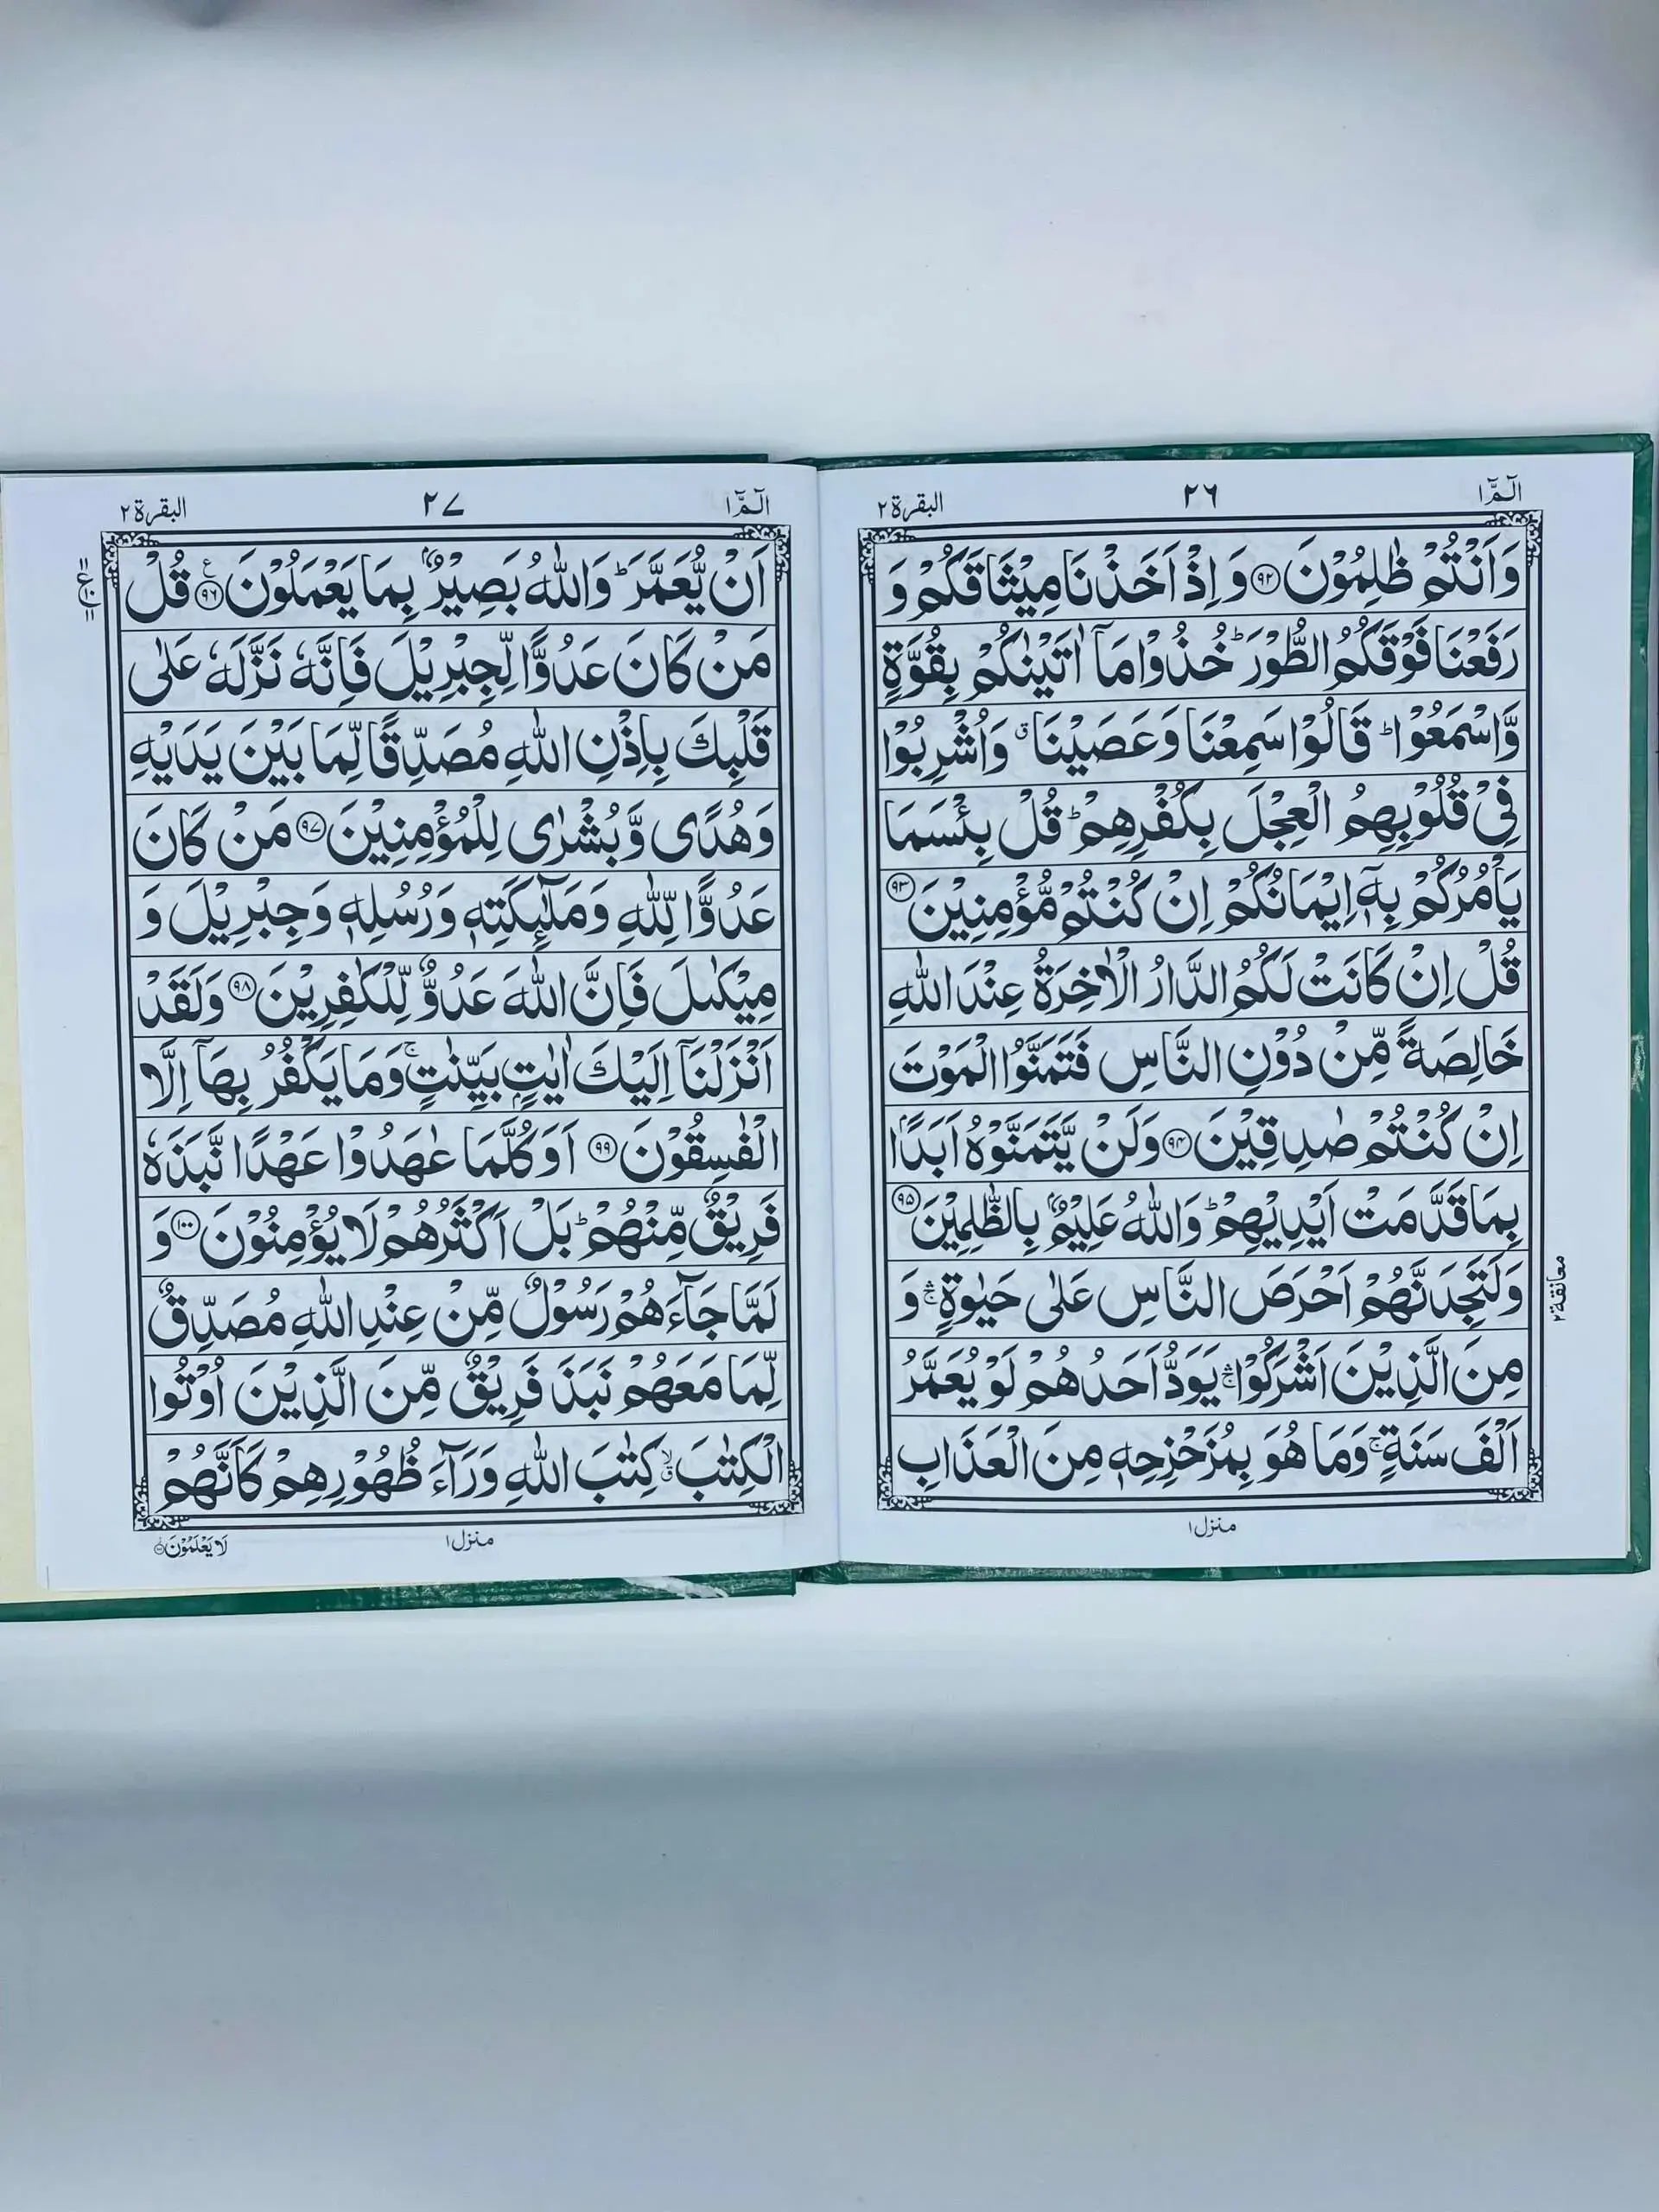 الٓمّٓ ۱
۲۶
البقرة ۲
وَاَنْتُمْ ظٰلِمُوْنَ ﴿۹۲﴾ وَ اِذْ اَخَذْنَا مِيْثَاقَكُمْ وَ
رَفَعْنَا فَوْقَكُمُ الطُّوْرَ ؕ خُذُوْا مَاۤ اٰتَيْنٰكُمْ بِقُوَّةٍ
وَّاسْمَعُوْا ؕ قَالُوْا سَمِعْنَا وَعَصَيْنَا ۗ وَاُشْرِبُوْا
فِيْ قُلُوْبِهِمُ الْعِجْلَ بِكُفْرِهِمْ ؕ قُلْ بِئْسَمَا
يَاْمُرُكُمْ بِهٖۤ اِيْمَانُكُمْ اِنْ كُنْتُمْ مُّؤْمِنِيْنَ ﴿۹۳﴾
قُلْ اِنْ كَانَتْ لَكُمُ الدَّارُ الْاٰخِرَةُ عِنْدَ اللّٰهِ
خَالِصَةً مِّنْ دُوْنِ النَّاسِ فَتَمَنَّوُا الْمَوْتَ
اِنْ كُنْتُمْ صٰدِقِيْنَ ﴿۹۴﴾ وَلَنْ يَّتَمَنَّوْهُ اَبَدًۢا
بِمَا قَدَّمَتْ اَيْدِيْهِمْ ؕ وَاللّٰهُ عَلِيْمٌۢ بِالظّٰلِمِيْنَ ﴿۹۵﴾
وَلَتَجِدَنَّهُمْ اَحْرَصَ النَّاسِ عَلٰى حَيٰوةٍ ۛۚ وَ
مِنَ الَّذِيْنَ اَشْرَكُوْا ۛۚ يَوَدُّ اَحَدُهُمْ لَوْ يُعَمَّرُ
اَلْفَ سَنَةٍ ۚ وَمَا هُوَ بِمُزَحْزِحِهٖ مِنَ الْعَذَابِ
معانقة ۲
منزل ۱
الٓمّٓ ۱
۲۷
البقرة ۲
اَنْ يُّعَمَّرَ ؕ وَاللّٰهُ بَصِيْرٌۢ بِمَا يَعْمَلُوْنَ ﴿۹۶﴾ ع قُلْ
مَنْ كَانَ عَدُوًّا لِّجِبْرِيْلَ فَاِنَّهٗ نَزَّلَهٗ عَلٰى
قَلْبِكَ بِاِذْنِ اللّٰهِ مُصَدِّقًا لِّمَا بَيْنَ يَدَيْهِ
وَهُدًى وَّبُشْرٰى لِلْمُؤْمِنِيْنَ ﴿۹۷﴾ مَنْ كَانَ
عَدُوًّا لِّلّٰهِ وَمَلٰٓئِكَتِهٖ وَرُسُلِهٖ وَجِبْرِيْلَ وَ
مِيْكٰىلَ فَاِنَّ اللّٰهَ عَدُوٌّ لِّلْكٰفِرِيْنَ ﴿۹۸﴾ وَلَقَدْ
اَنْزَلْنَاۤ اِلَيْكَ اٰيٰتٍۭ بَيِّنٰتٍ ۚ وَمَا يَكْفُرُ بِهَاۤ اِلَّا
الْفٰسِقُوْنَ ﴿۹۹﴾ اَوَكُلَّمَا عٰهَدُوْا عَهْدًا نَّبَذَهٗ
فَرِيْقٌ مِّنْهُمْ ؕ بَلْ اَكْثَرُهُمْ لَا يُؤْمِنُوْنَ ﴿۱۰۰﴾ وَ
لَمَّا جَآءَهُمْ رَسُوْلٌ مِّنْ عِنْدِ اللّٰهِ مُصَدِّقٌ
لِّمَا مَعَهُمْ نَبَذَ فَرِيْقٌ مِّنَ الَّذِيْنَ اُوْتُوا
الْكِتٰبَ ۙۗ كِتٰبَ اللّٰهِ وَرَآءَ ظُهُوْرِهِمْ كَاَنَّهُمْ
منزل ۱
لَا يَعْلَمُوْنَ